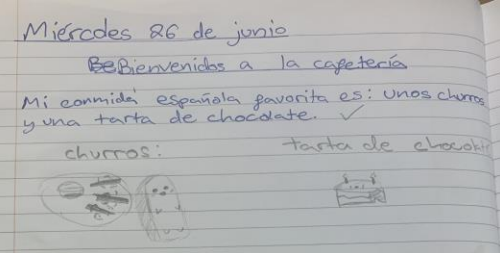 Miércoles 26 de junio
BeBienvenidos a la cafetería
Mi conmida española favorita es: unos churros
y una tarta de chocolate.
churros: tarta de chocolate